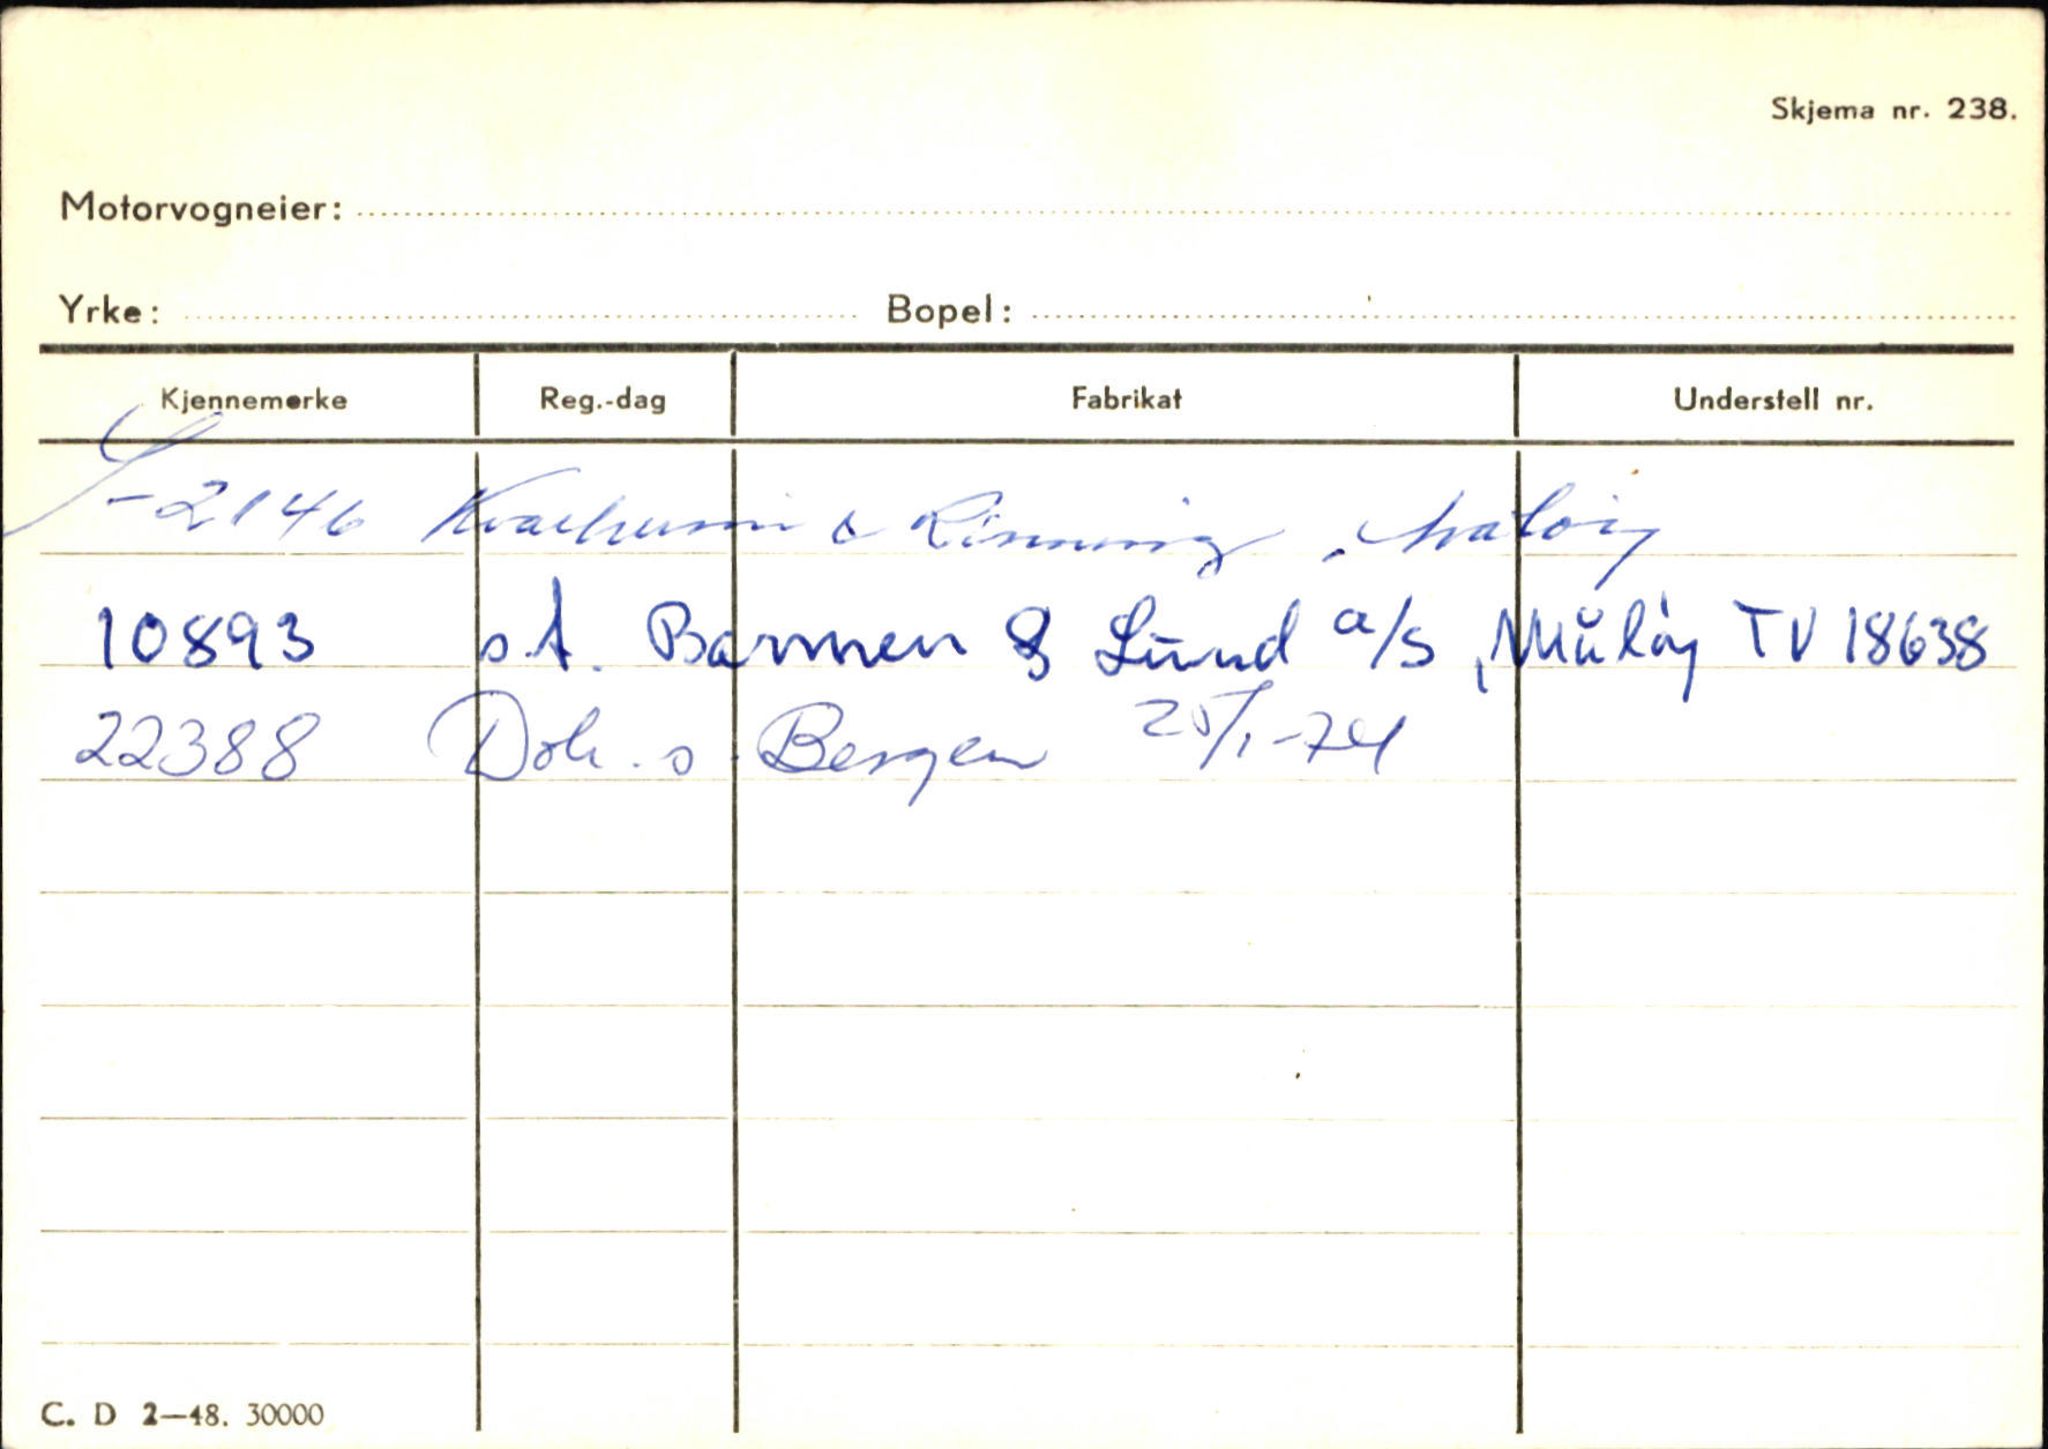 Skjema nr. 238.
Motorvogneier:
Yrke: Bopel:
Kjennemerke Reg.-dag Fabrikat Understell nr.
S-2146 & Rimming, Måløy
10893 s.A. Barmen & Lund a/s, Måløy TV 18638
22388 Do h. s. Bergen 25/1-74
C. D 2—48. 30000